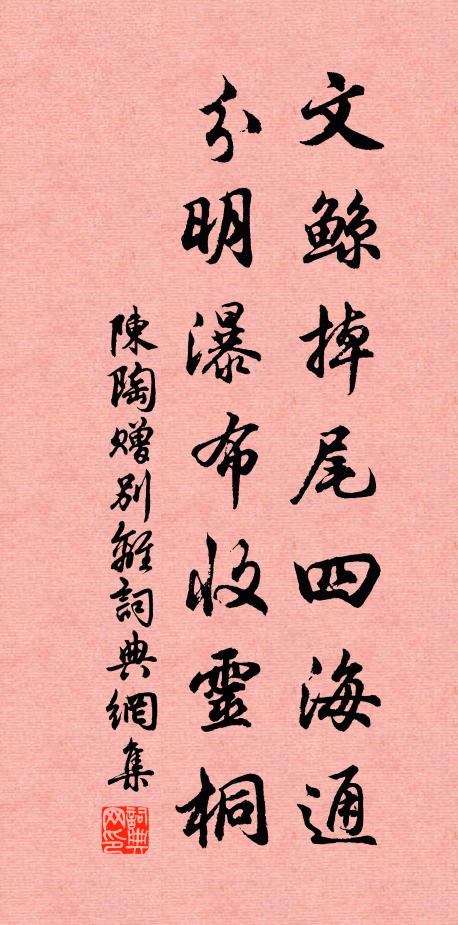 文鯨掉尾四海通
分明瀑布收靈桐
陳陶贈別離詞典網集
詞典網印